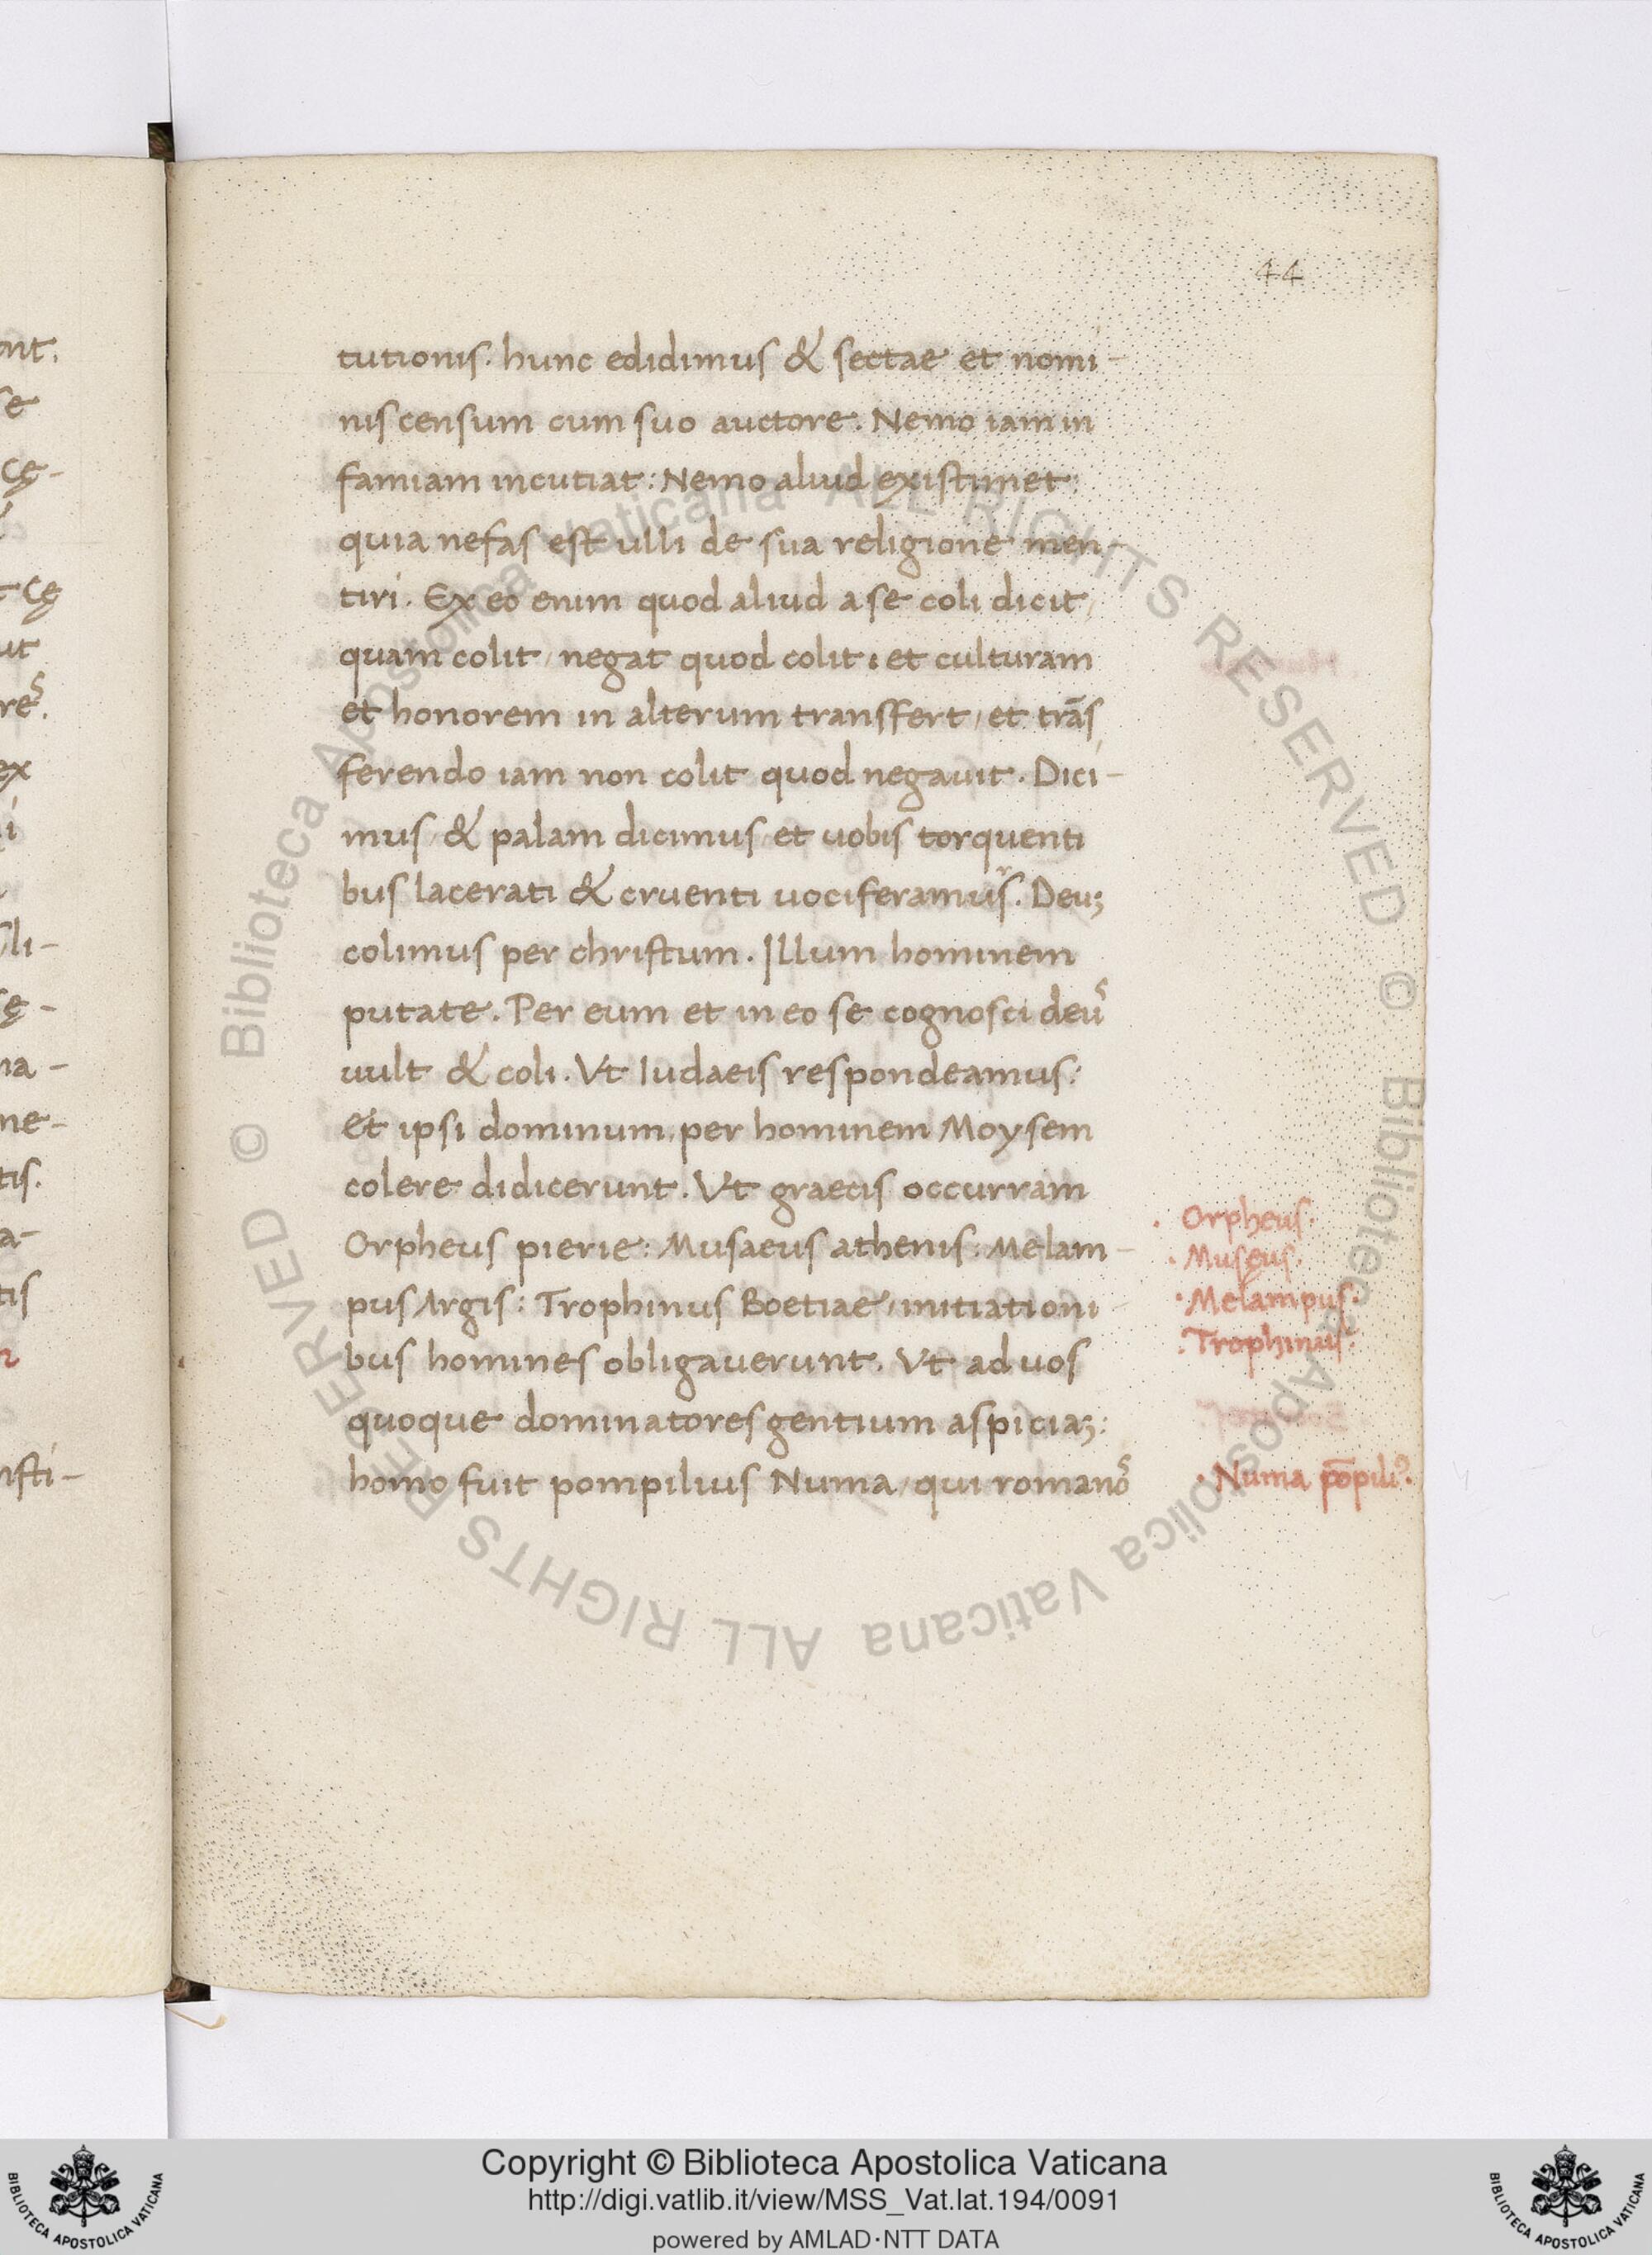 44
tutionis. hunc edidimus & sectae et nomi-
nis censum cum suo auctore. Nemo iam in
famiam incutiat: Nemo aliud existimet:
quia nefas est ulli de sua religione men-
tiri. Ex eo enim quod aliud a se coli dicit,
quam colit, negat quod colit: et culturam
et honorem in alterum transfert, et trās
ferendo iam non colit quod negauit. Dici-
mus & palam dicimus et uobis torquenti
bus lacerati & cruenti uociferamur. Deuꝫ
colimus per christum. Illum hominem
putate. Per eum et in eo se cognosci deus
uult & coli. Vt Iudaeis respondeamus:
et ipsi dominum per hominem Moysem
colere didicerunt. Vt graecis occurram
Orpheus pierie: Musaeus athenis: Melam-
pus Argis: Trophinus Boetiae, initiationi-
bus homines obligauerunt. Vt ad uos
quoque dominatores gentium aspiciaꝫ:
homo fuit pompilius Numa, qui romanos
. Orpheus.
. Musęus.
. Melampus.
. Trophinus.
. Numa pōpiliꝰ.
ant.
se
cę-
cę
ut
res.
ex
li-
sę-
na-
ne-
tis.
a-
tis
nsti-
Copyright © Biblioteca Apostolica Vaticana
http://digi.vatlib.it/view/MSS_Vat.lat.194/0091
powered by AMLAD·NTT DATA
BIBLIOTECA APOSTOLICA VATICANA
BIBLIOTECA APOSTOLICA VATICANA
© Biblioteca Apostolica Vaticana ALL RIGHTS RESERVED © Biblioteca Apostolica Vaticana ALL RIGHTS RESERVED